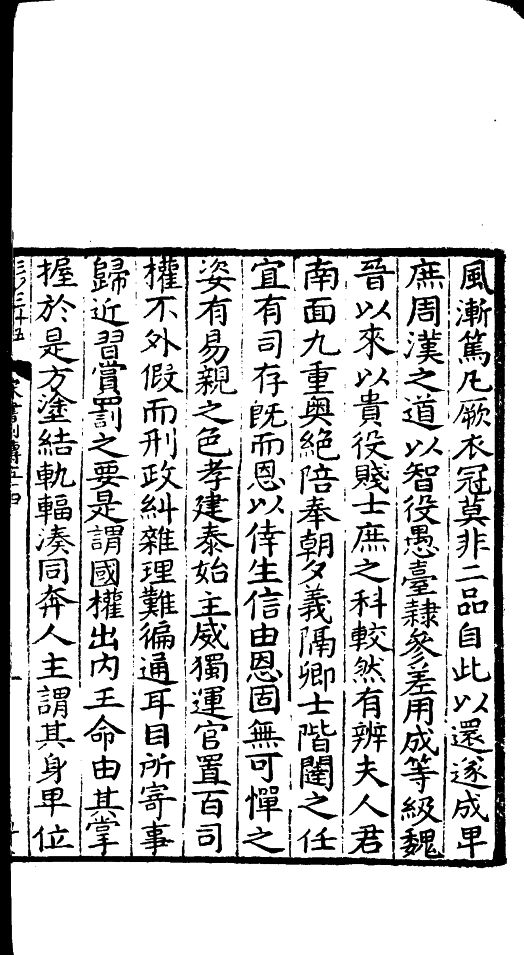 風漸篤凡厥衣冠莫非二品自此以還遂成卑
庶周漢之道以智役愚臺隷參差用成等級魏
晉以來以貴役賤士庶之科較然有辨夫人君
南面九重奧絕陪奉朝夕義隔卿士階闥之任
宜有司存旣而恩以倖生信由恩固無可憚之
姿有易親之色孝建泰始主威獨運官置百司
權不外假而刑政糾雜理難徧通耳目所寄事
歸近習賞罰之要是謂國權出內王命由其掌
握於是方塗結軌輻湊同奔人主謂其身卑位